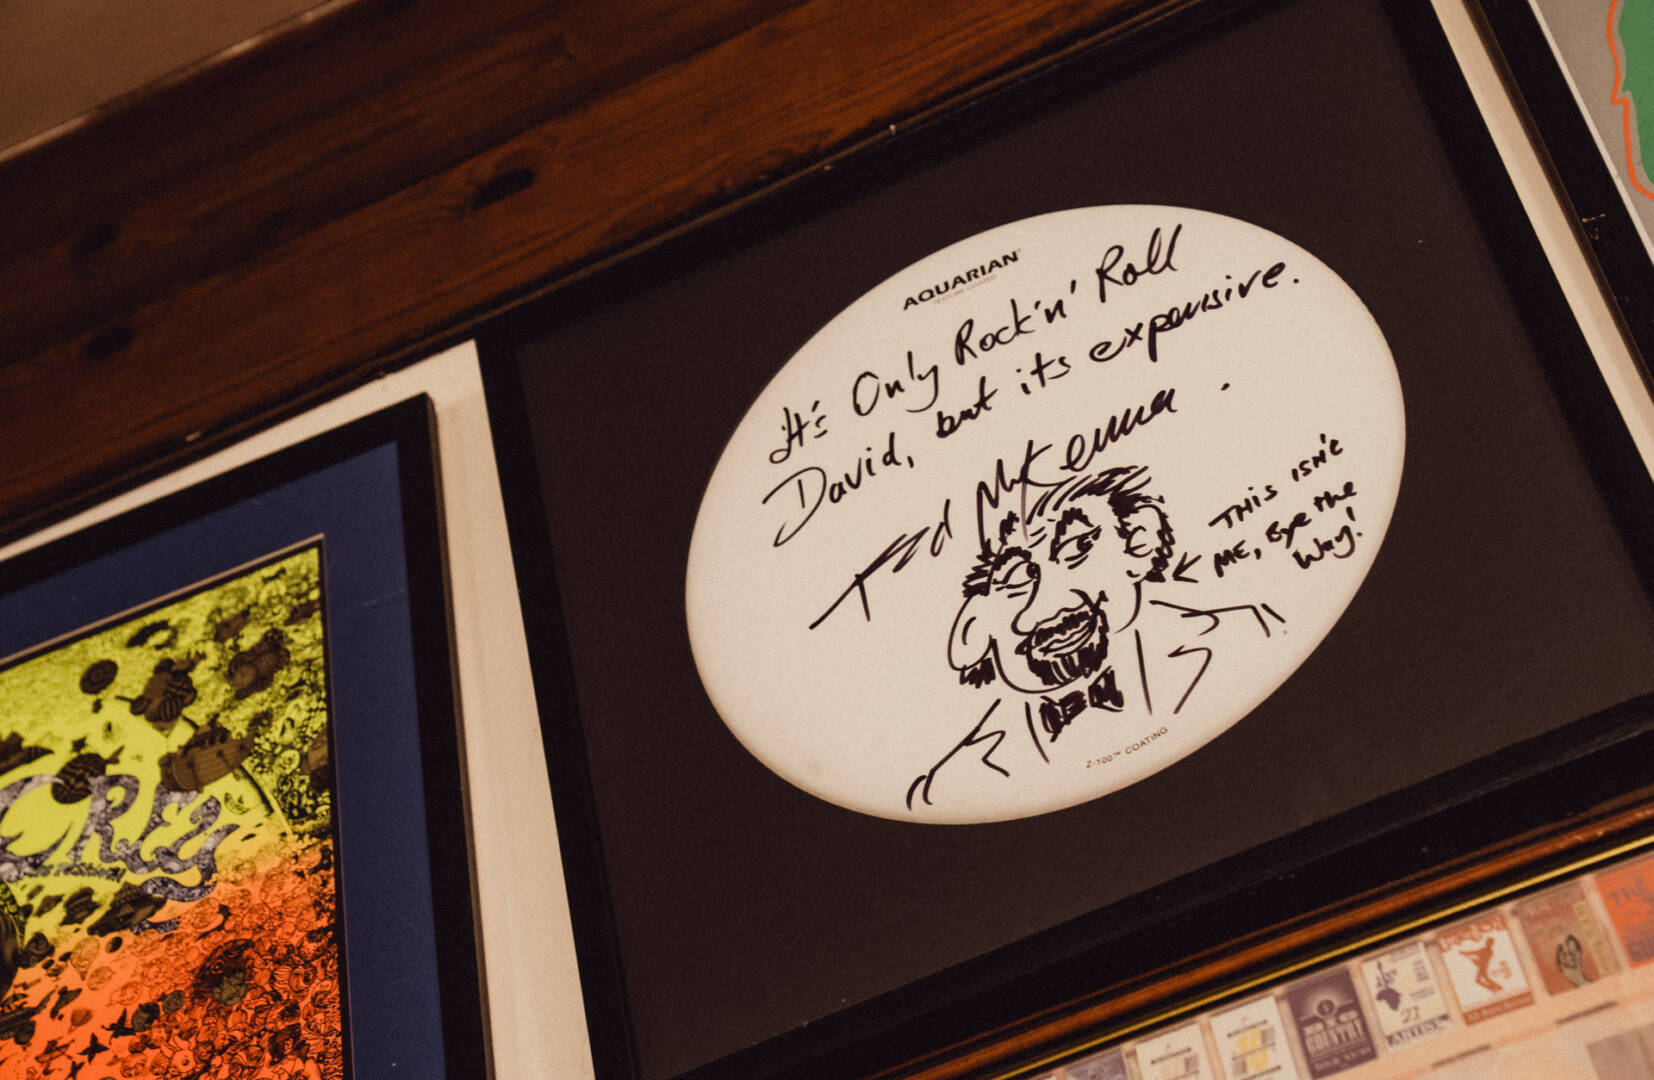 AQUARIAN™
TEXTURE COATED
It's Only Rock'n' Roll
David, but its expensive.
Ted McKenna
THIS ISN'T
ME, Bye the
Way!
Z-100™ COATING
COUNTRY
21